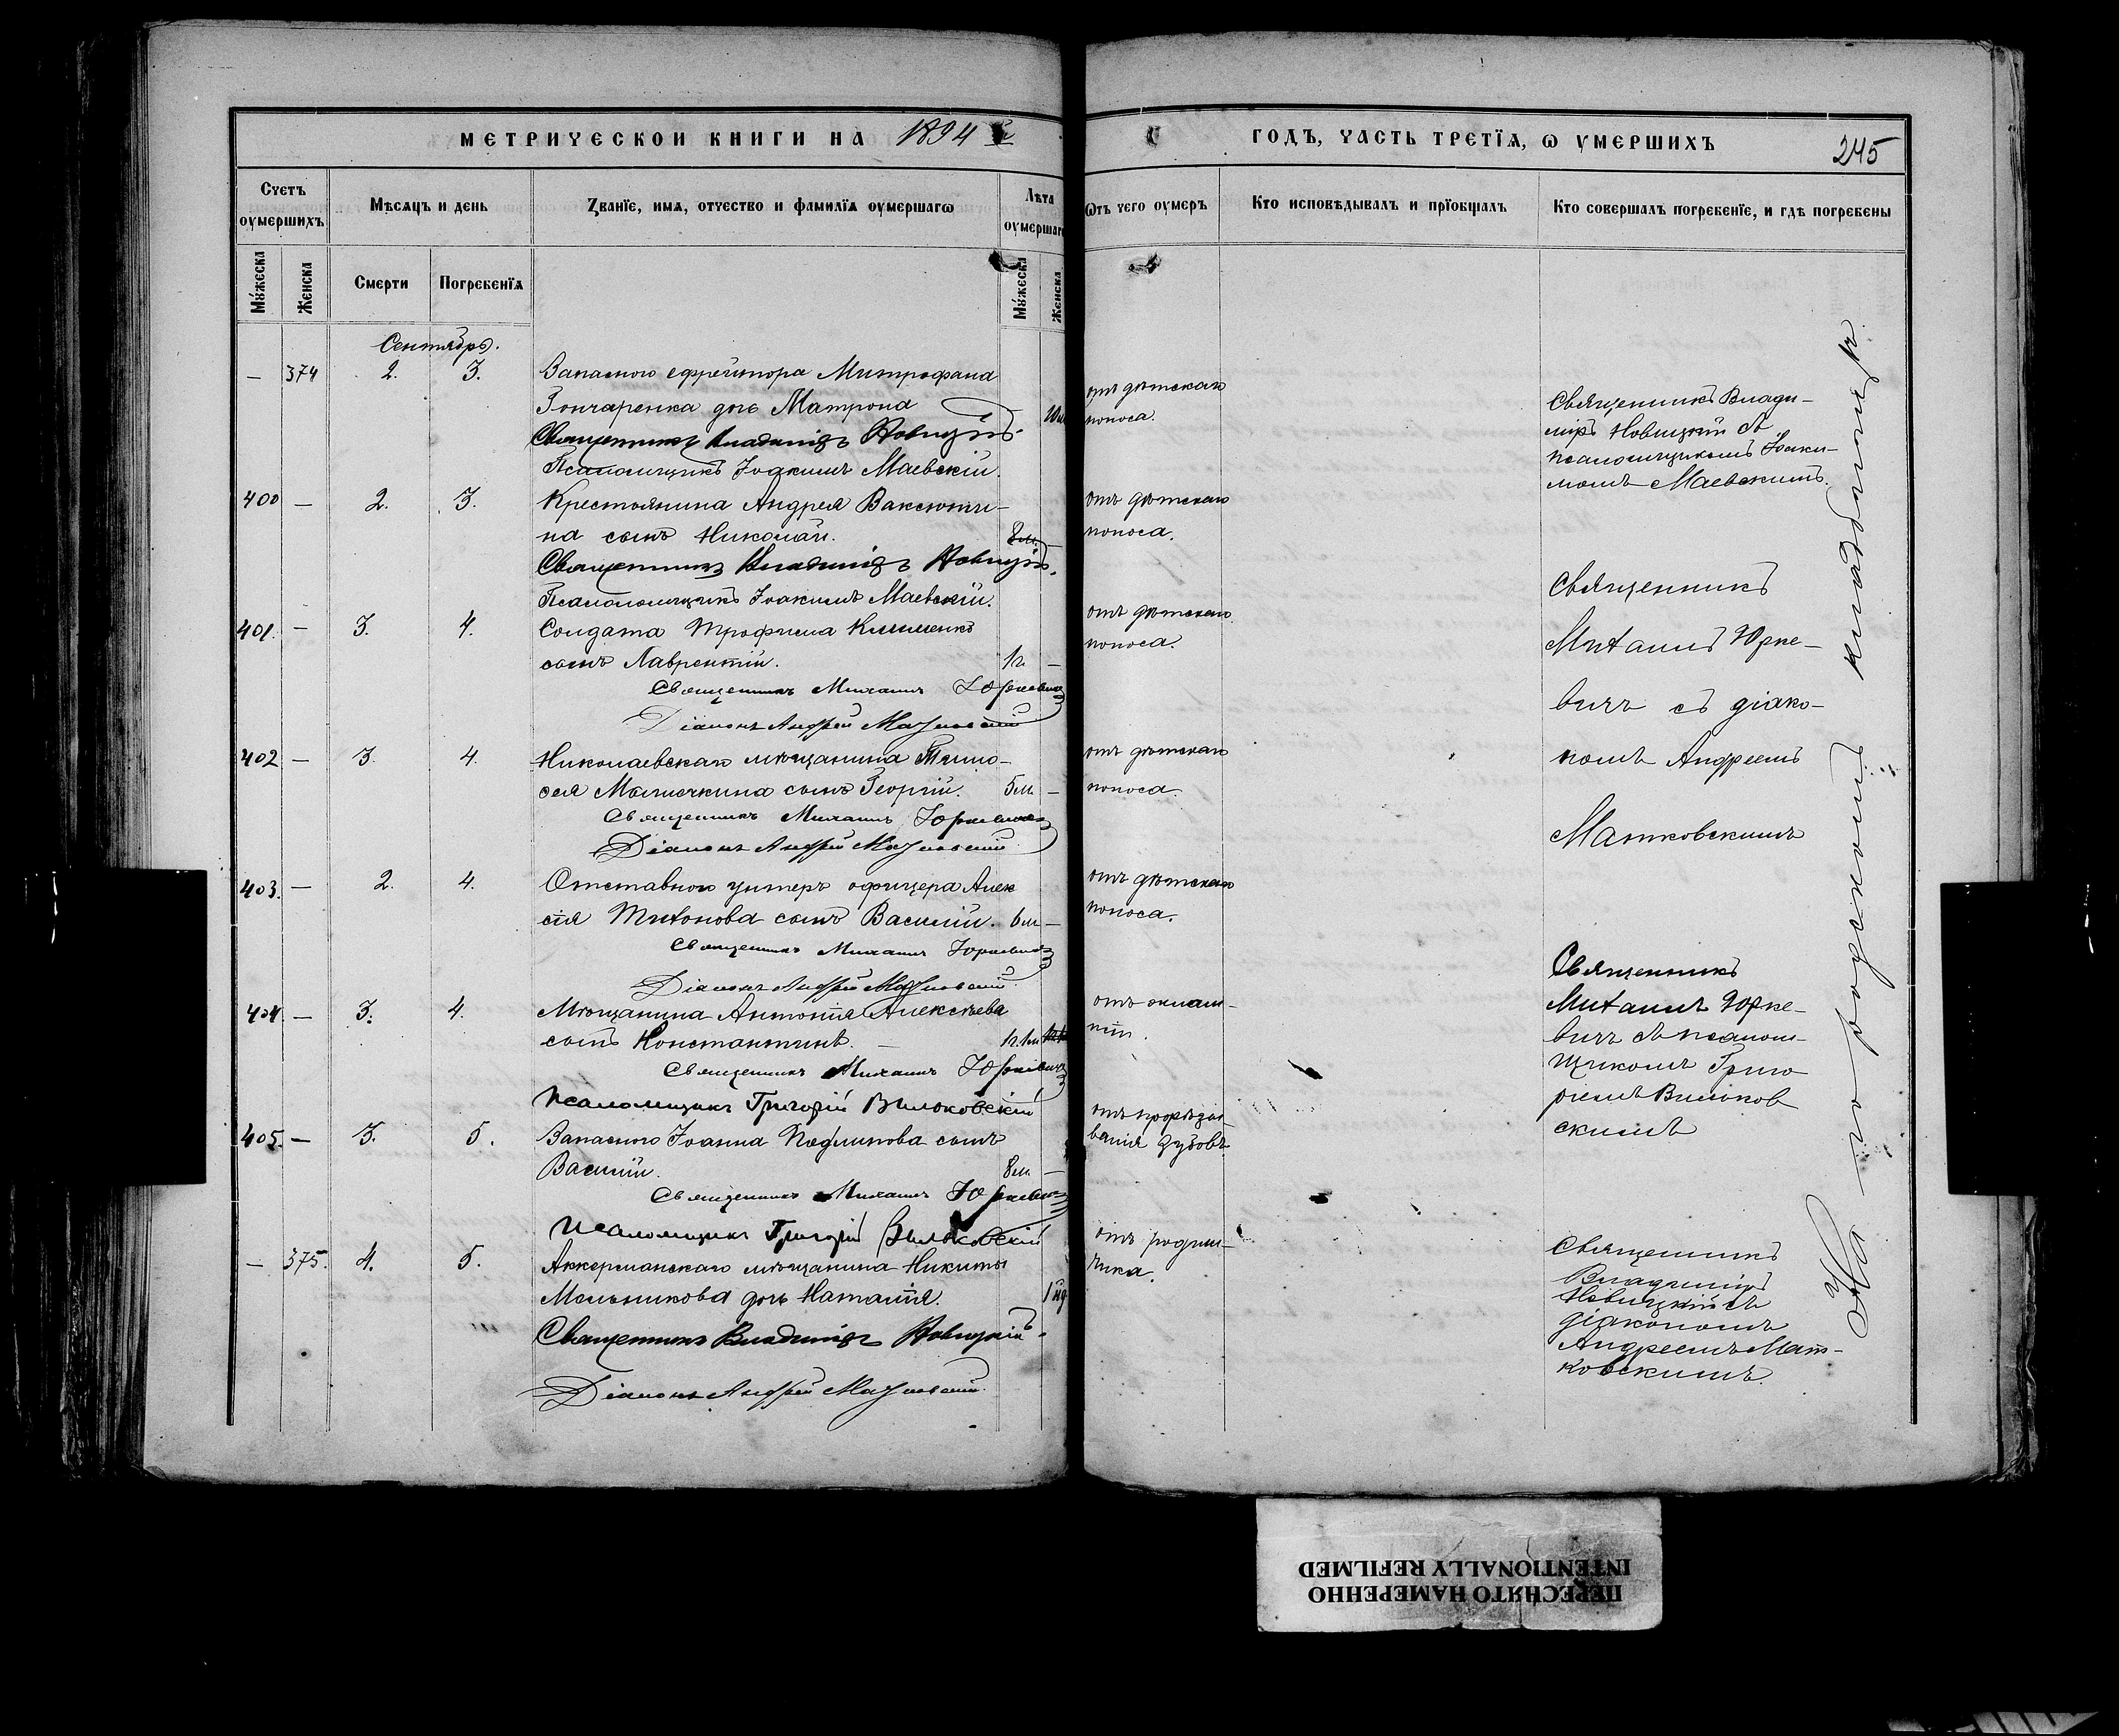 МЕТРИЧЕСКОЙ КНИГИ НА 1894 й
ГОДЪ, ЧАСТЬ ТРЕТЇѦ, Ѡ УМЕРШИХЪ
245
Счетъ оумершихъ
Мѣсѧцъ и день
Званїе, имѧ, отчество и фамилїѧ оумершагѡ
Лѣта оумершаг
Ѿтъ чего оумеръ
Кто исповѣдывалъ и прїобщалъ
Кто совершалъ погребенїе, и гдѣ погребены
Мужеска
Женска
Смерти
Погребенїѧ
Мужеска
Женска
Сентябрь.
— 374 2. 3. Запаснаго ефрейтора Митрофана
Гончаренка дочь Матрона
Священникъ Владиміръ Новицкій
Псаломщикъ Іоакимъ Маевскій.
отъ дѣтскаго
поноса.
Священникъ Влади-
міръ Новицкій съ
псаломщикомъ Іоаки-
момъ Маевскимъ.
400 — 2. 3. Крестьянина Андрея Ваксюти-
на сынъ Николай. 8 м. —
Священникъ Владиміръ Новицкій.
Псаломщикъ Іоакимъ Маевскій.
отъ дѣтскаго
поноса.
401. — 3. 4. Солдата Трофима
сынъ Лаврентій. 1 г. —
Священникъ Михаилъ Юркевичъ
Діаконъ Андрей Матковскій
отъ дѣтскаго
поноса.
Священникъ
Михаилъ Юрке-
вичъ съ діако-
номъ Андреемъ
Матковскимъ
402 — 3. 4. Николаевскаго мѣщанина Тимо-
фея сынъ Георгій. 5 м. —
Священникъ Михаилъ Юркевичъ
Діаконъ Андрей Матковскій
отъ дѣтскаго
поноса.
403. — 2. 4. Отставного унтеръ офицера Алек
сѣя Тихонова сынъ Василій. 6 м —
Священникъ Михаилъ Юркевичъ
Діаконъ Андрей Матковскій
отъ дѣтскаго
поноса.
404. — 3. 4. Мѣщанина Антонія Алексѣева
сынъ Константинъ. — 1 г. 1 м
Священникъ Михаилъ Юркевичъ
Псаломщикъ Григорій Вилюковскій
Священникъ
Михаилъ Юрке-
вичъ съ псалом-
щикомъ Григо
ріемъ Вилюков
скимъ
405. — 3. 5. Запаснаго Іоанна сынъ
Василій. 8 м. —
Священникъ Михаилъ Юркевичъ
Псаломщикъ Григорій Вилюковскій
отъ прорѣзы-
ванія зубовъ.
— 375. 4. 5. Аккерманскаго мѣщанина Никиты
Мельникова дочь Наталія. 1 нд
Священникъ Владиміръ Новицкій.
Діаконъ Андрей Матковскій.
отъ родим-
чика.
Священникъ
Владиміръ
Новицкій съ
діакономъ
Андреемъ Мат-
ковскимъ.
На городскомъ кладбищѣ
ПЕРЕСНЯТО НАМЕРЕННО
INTENTIONALLY REFILMED